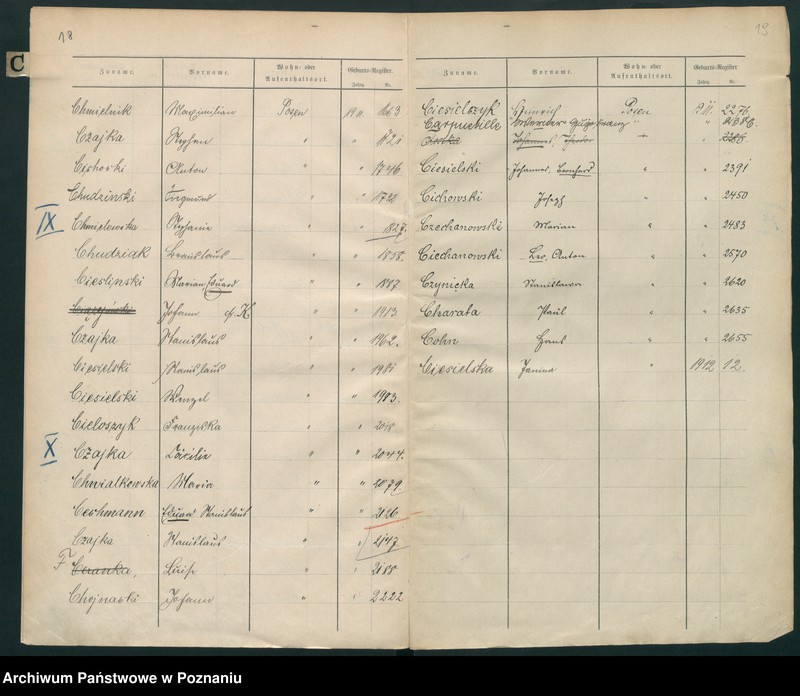 18
C
Zuname. Vorname. Wohn- oder Aufenthaltsort. Geburts-Register. Jahrg. Nr.
Chmielnik Maximilian Posen 1911
Czajka Stephan " "
Cichocki Anton " " 1746
Chudzinski Siegmund " " 1722
IX Chmielewska Stephanie " " 1827
Chudziak Bronislaus " " 1858.
Cieslinski Marian Eduard " "
Johann cf. K " " 1913
Czajka Stanislaus " " 1962.
Ciesielski Stanislaus " " 1981
Ciesielski Wenzel " " 1983.
Cieloszyk Franziska " "
X Czajka Cäcilie " " 2044.
Chwialkowska Maria " " 2079.
Cechmann Eduard Stanislaus " " 2126
Czajka Stanislaus " " 2147
F Luise " " 2188
Chojnacki Johann " " 2222
19
Zuname. Vorname. Wohn- oder Aufenthaltsort. Geburts-Register. Jahrg. Nr.
Ciesielczyk Heinrich Posen 1911 2276.
Ciesielski Johannes, Bernhard " " 2391
Cichowski Joseph " " 2450
Czechanowski Marian " " 2483
Ciechanowski Leo, Anton " " 2570
Czynięka Stanislawa " " 2620
Charata Paul " " 2635
Cohn Hans " " 2655
Ciesielska Janina " 1912 12.
Archiwum Państwowe w Poznaniu